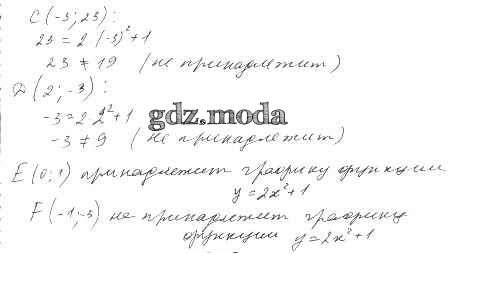 C(-3; 23):
23 = 2 (-3)² + 1
23 ≠ 19 (не принадлежит)
D(2; -3):
-3 = 2 2² + 1
gdz.moda
-3 ≠ 9 (не принадлежит)
E(0; 1) принадлежит графику функции
y = 2x² + 1
F(-1; -3) не принадлежит графику
функции y = 2x² + 1